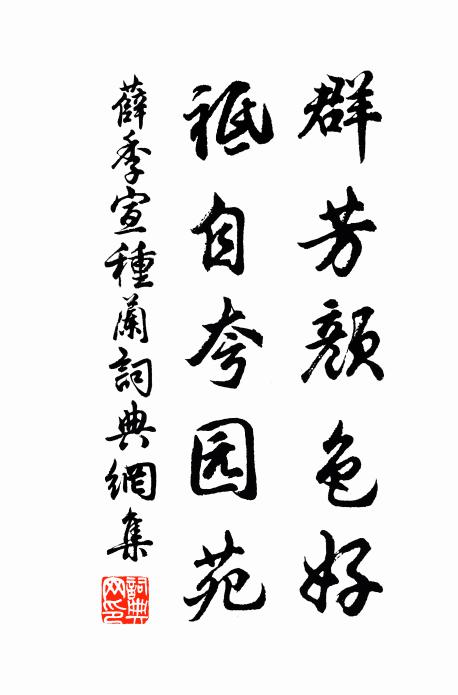 群芳颜色好
祗自夸园苑
薛季宣種蘭詞典網集
詞典网印